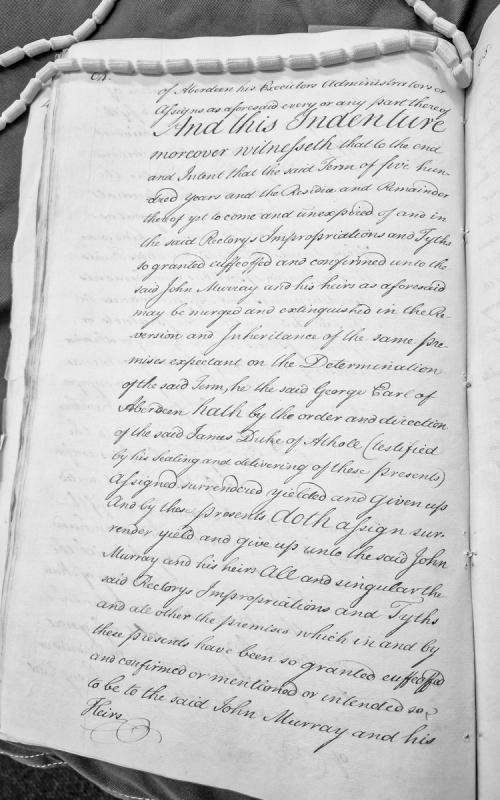 of Aberdeen his Executors Administrators or
Assigns as aforesaid every or any part thereof
And this Indenture
moreover witnesseth that to the end
and Intent that the said Term of five hun-
dred years and the Residue and Remainder
thereof yet to come and unexpired of and in
the said Rectorys Impropriations and Tyths
so granted enfeoffed and confirmed unto the
said John Murray and his heirs as aforesaid
may be merged and extinguished in the Re-
version and Inheritance of the same pre-
mises expectant on the Determination
of the said Term, he the said George Earl of
Aberdeen hath by the order and direction
of the said James Duke of Atholl (testified
by his sealing and delivering of these presents)
Assigned surrendered yielded and given up
And by these presents doth assign sur-
render yield and give up unto the said John
Murray and his heirs All and singular the
said Rectorys Impropriations and Tyths
and all other the premises which in and by
these presents have been so granted enfeoffed
and confirmed or mentioned or intended so
to be to the said John Murray and his
Heirs